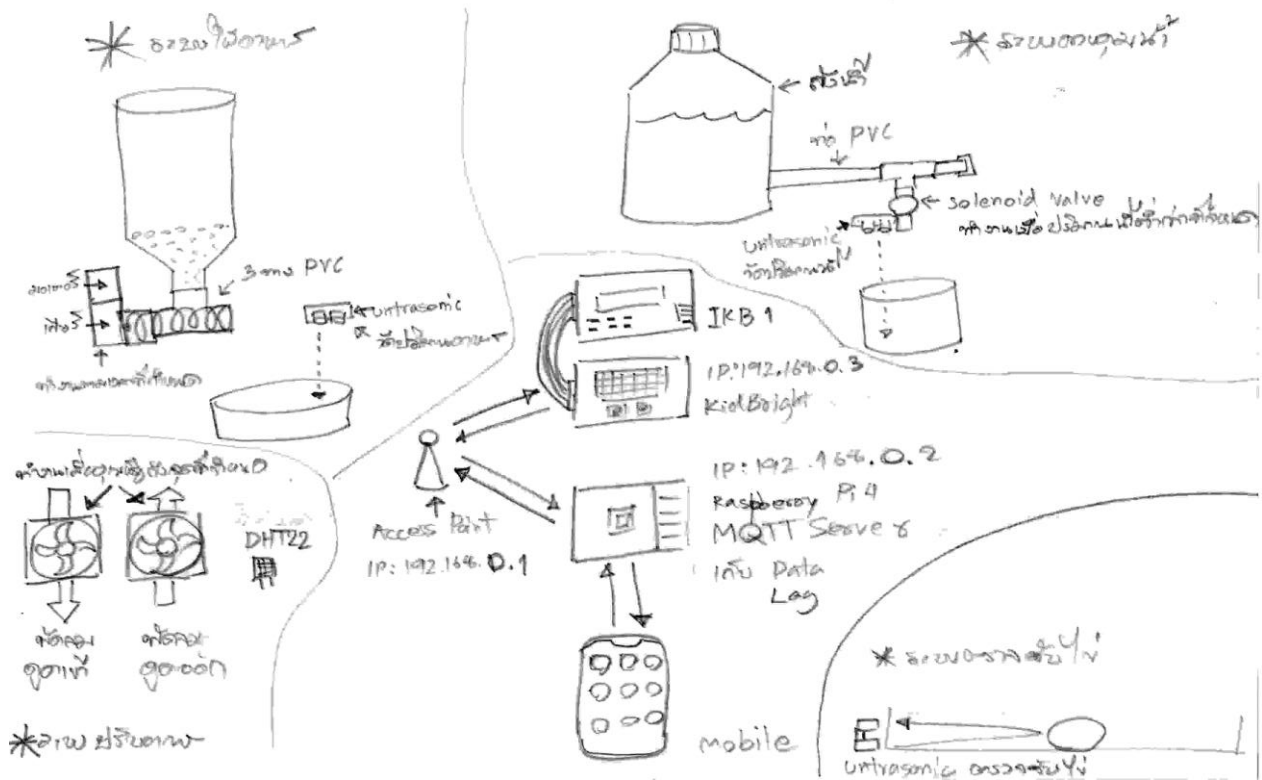 * ระบบให้อาหาร
3 ทาง PVC
มอเตอร์
เกียร์
ทำงานตามเวลาที่กำหนด
untrasonic
วัดปริมาณอาหาร
* ระบบควบคุมน้ำ
ถังน้ำ
ท่อ PVC
solenoid valve
ทำงานเมื่อปริมาณน้ำต่ำกว่าที่กำหนด
untrasonic
วัดปริมาณน้ำ
IKB 1
IP:192.168.0.3
KidBright
IP:192.168.0.2
Raspberry Pi 4
MQTT Server
เก็บ Data
Log
Access Point
IP:192.168.0.1
mobile
ทำงานเมื่ออุณหภูมิถึงจุดที่กำหนด
DHT22
พัดลม
ดูดเข้า
พัดลม
ดูดออก
* ระบบตรวจจับไข่
untrasonic ตรวจจับไข่